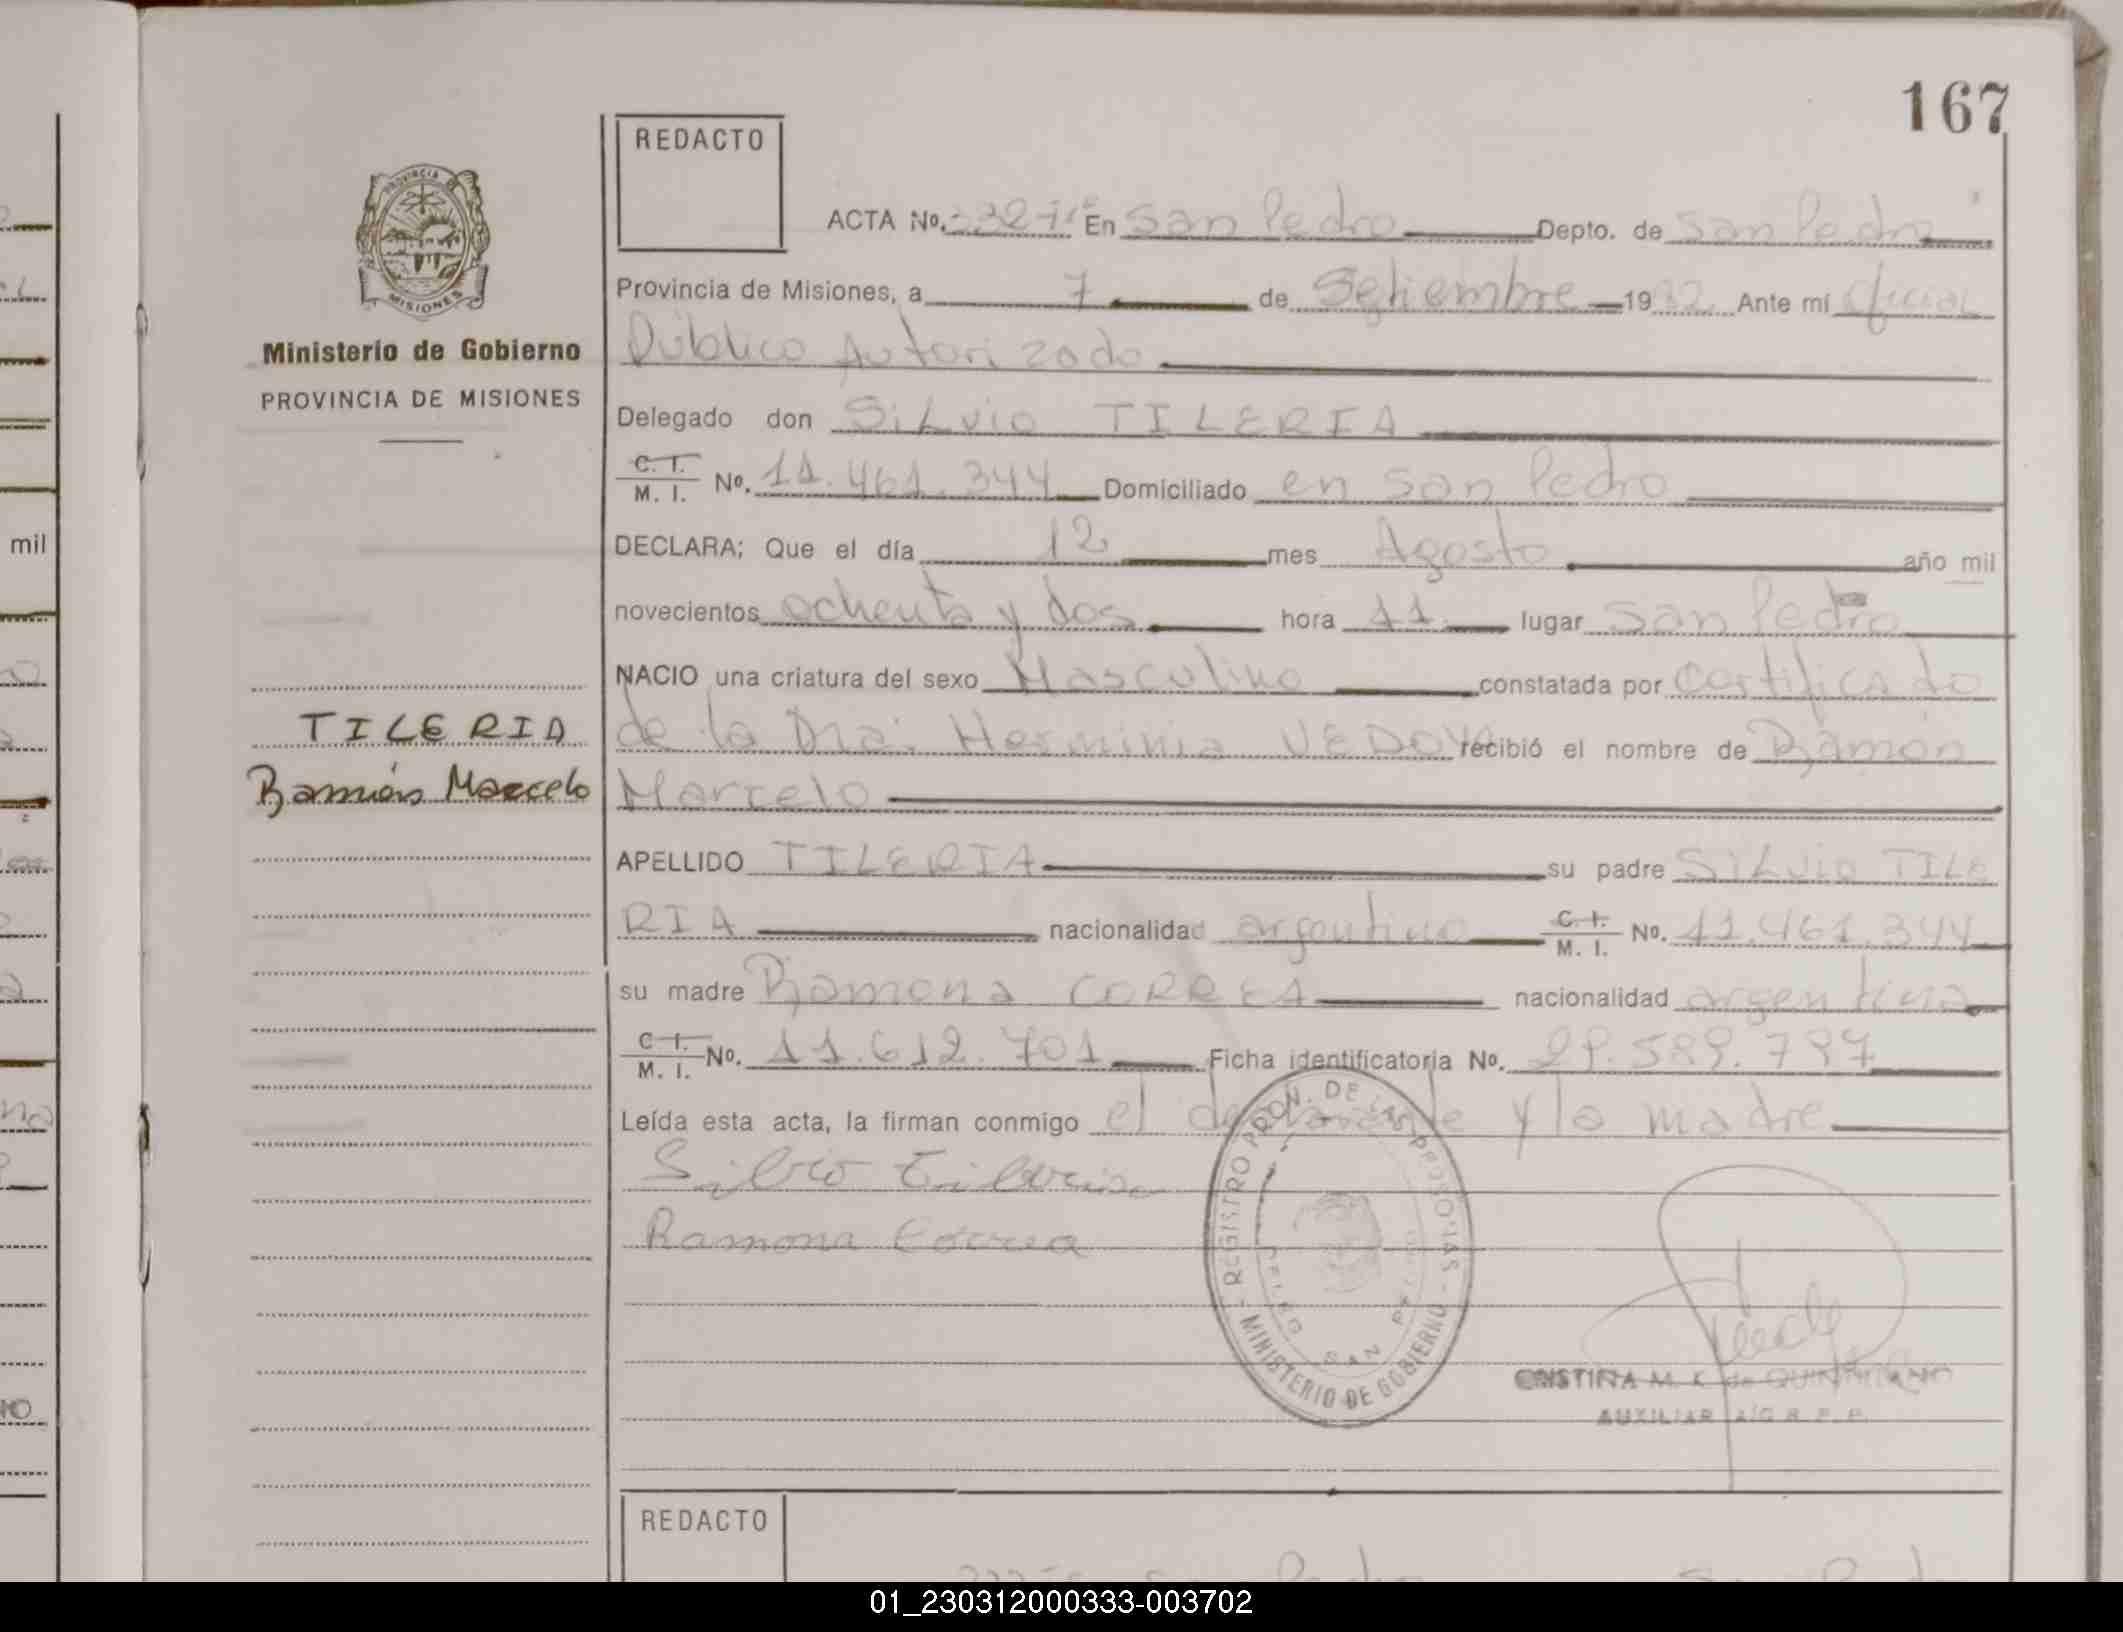 167
REDACTO
ACTA No. 327 En San Pedro Depto. de San Pedro
Provincia de Misiones, a 7 de Setiembre 1982 Ante mí Oficial
Público Autorizado
Ministerio de Gobierno
PROVINCIA DE MISIONES
Delegado don SiLvio TILERIA
C. I. M. I. No. 11.461.344 Domiciliado en San Pedro
DECLARA; Que el día 12 mes Agosto año mil
mil
novecientos ochenta y dos hora 11 lugar San Pedro
NACIO una criatura del sexo Masculino constatada por Certificado
de la Dra. Herminia VEDOYA recibió el nombre de Ramón
Marcelo
TILERIA
Ramón Marcelo
APELLIDO TILERIA su padre SiLvio TILE
RIA nacionalidad argentino C. I. M. I. No. 11.461.344
su madre Ramona CORREA nacionalidad argentina
C. I. M. I. No. 11.612.701 Ficha identificatoria No. 29.589.797
Leída esta acta, la firman conmigo el declarante y la madre
Silvio Tileria
Ramona Correa
REGISTRO PROV. DE LAS PERSONAS - MINISTERIO DE GOBIERNO -
DELEG. SAN PEDRO
CRISTINA M. K. de QUINTANO
AUXILIAR A/C R. P. P.
REDACTO
San Pedro
01_230312000333-003702